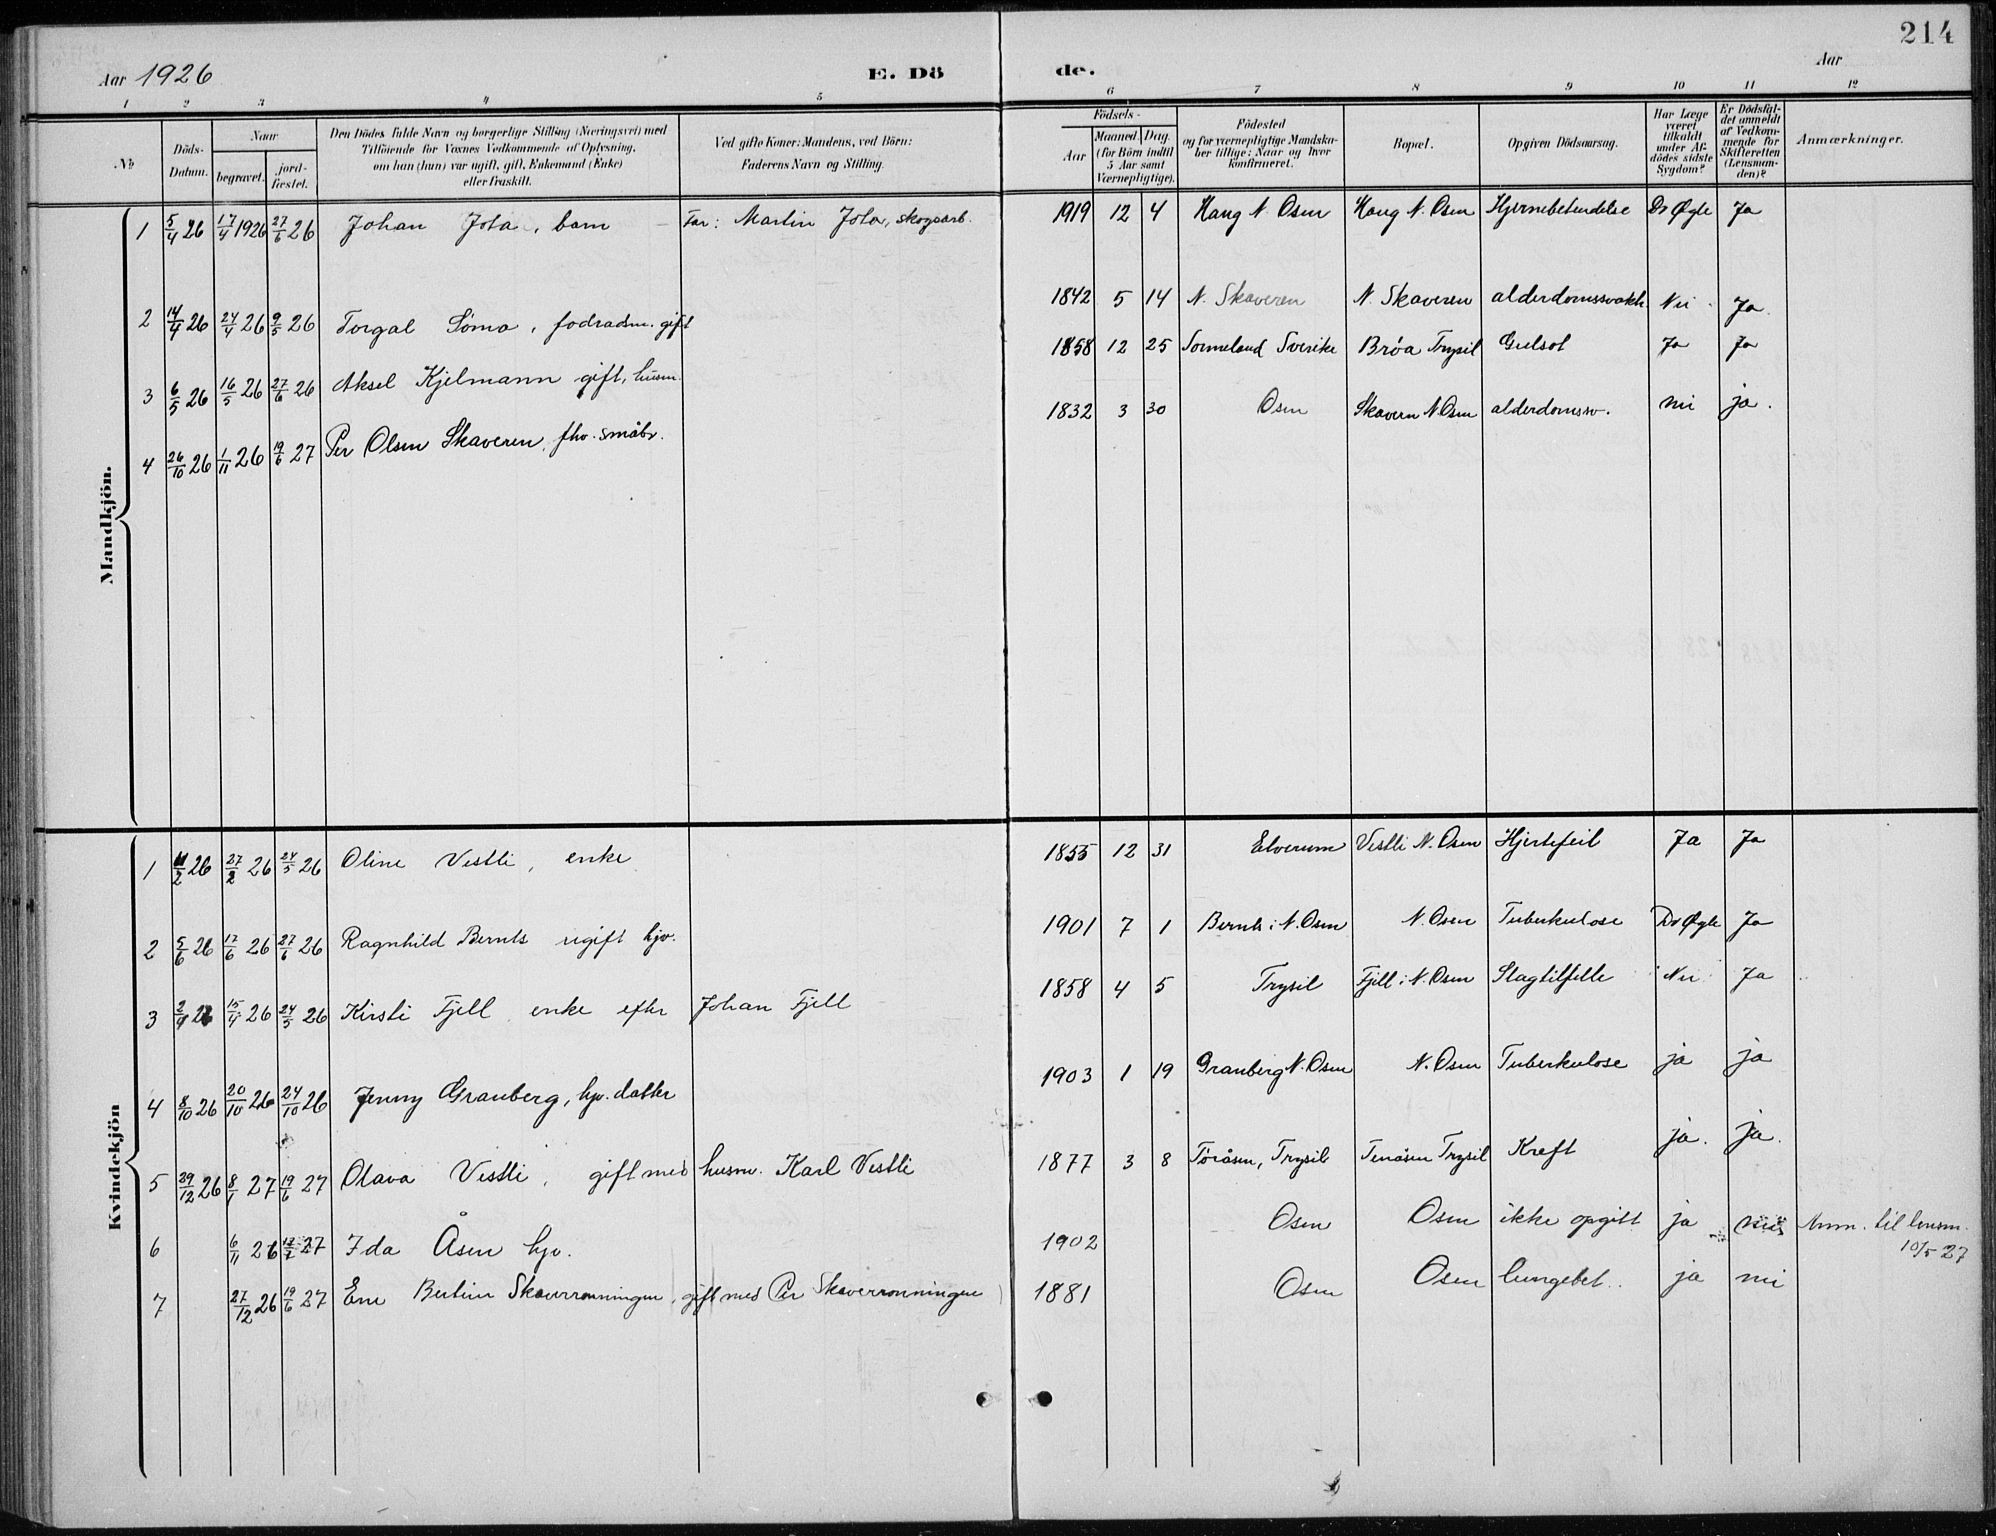 214
Aar 1926 E. Dö de. Aar
1 2 3 4 5 6 7 8 9 10 11 12
№ Döds-Datum. Naar begravet. jordfæstet. Den Dödes fulde Navn og borgerlige Stilling (Næringsvei) med Tilföiende for Voxnes Vedkommende af Oplysning, om han (hun) var ugift, gift, Enkemand (Enke) eller fraskilt. Ved gifte Koner: Mandens, ved Börn: Faderens Navn og Stilling. Födsels- Aar Maaned. Dag. (for Börn indtil 5 Aar samt Værnepligtige). Födested og for værnepligtige Mandskaber tillige: Naar og hvor konfirmeret. Bopæl. Opgiven Dödsaarsag. Har Læge været tilkaldt under Afdödes sidste Sygdom? Er Dödsfaldet anmeldt af Vedkommende for Skifteretten (Lensmanden)? Anmærkninger.
Mandkjön.
1 5/4 26 17/4 1926 27/6 26 Johan Jota, barn Far: Martin Jota, skogsarb. 1919 12 4 Haug N. Osen Haug N. Osen Hjernebetendelse Dr Øgle Ja
2 14/4 26 24/4 26 9/5 26 Torgal Sömo, fodradsm. gift 1842 5 14 N. Skaveren N. Skaveren alderdomssvakh Nei Ja.
3 6/5 26 16/5 26 27/6 26 Aksel Kjelmann gift, husm. 1858 12 25 Sverike Bröa Trysil Gulsot Ja Ja
4 26/10 26 1/11 26 19/6 27 Per Olsen Skaveren, fhv. småbr. 1832 3 30 Osen Skavern N Osen alderdomssv. nei ja.
Kvindekjön
1 11/2 26 27/2 26 24/5 26 Oline Vestli, enke 1855 12 31 Elverum Vestli N. Osen Hjertefeil Ja Ja
2 5/6 26 17/6 26 27/6 26 Ragnhild Bernts ugift hjv. 1901 7 1 Bernts i N. Osen N. Osen Tuberkulose Dr Øgle Ja
3 2/4 26 15/4 26 24/5 26 Kirsti Fjell enke efter Johan Fjell 1858 4 5 Trysil Fjell i N. Osen Slagtilfelle Nei Ja
4 8/10 26 20/10 26 24/10 26 Jenny Granberg, hjv. datter 1903 1 19 Granberg N. Osen N. Osen Tuberkulose ja ja
5 29/12 26 8/1 27 19/6 27 Olava Vestli, gift med husm. Karl Vestli 1877 3 8 Töråsen, Trysil Trysil Kreft ja. ja.
6 6/11 26 27 Ida Åsen hjv. 1902 Osen Osen ikke opgitt ja nei Anm. til lensm.
10/5 27
7 27/12 26 19/6 27 Ene Bertine Skaverrönningen, gift med Per Skaverrönningen 1881 Osen Osen lungebet. ja nei